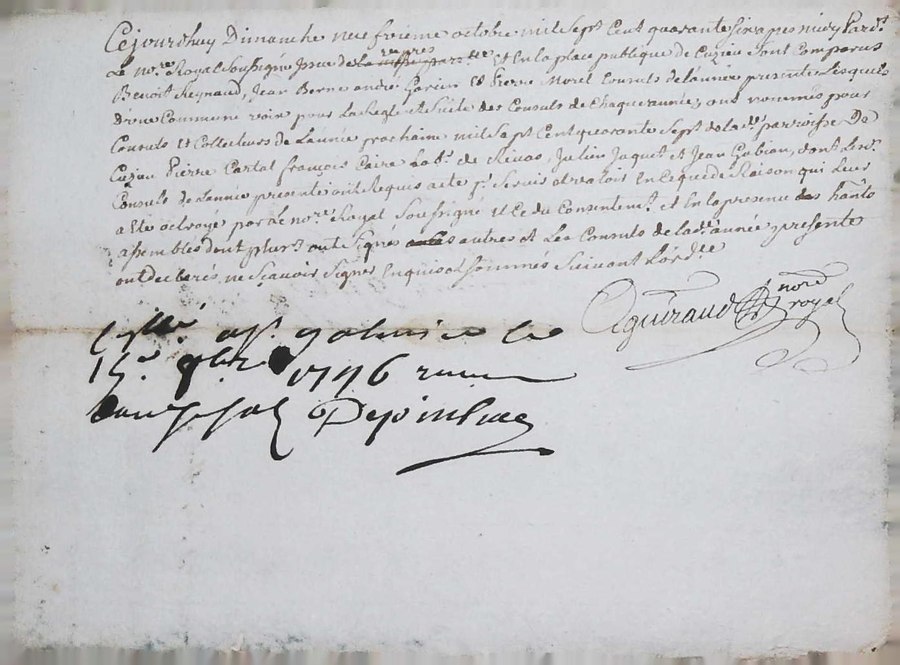 Cejourdhuy Dimanche neufvieme octobre mil Sept Cent quarante Six apres midy Pard.t
Le no.re Royal Soussigné Et En la place publique de Cuzieu Sont Comparus
Benoit Reynaud, Jean Berne andré Et Pierre Morel Consuls de lannée presente Lesquels
dune Commune voix pour La Regle et Suite des Consuls de Chaque année, ont nommés pour
Consuls et Collecteurs de Lannée prochaine mil Sept Cent quarante Sept de lad. parroisse De
Cuzieu Pierre Cartal françois Caire Lab.r de Rivas, Julien Jaquet et Jean Gubian, dont Lesd.
Consuls de lannée presente ont Requis acte p.r Servir et valoir En Ce que de Raison qui Leur
a Eté octroyé par Le no.re Royal Soussigné et Ce du Consentem.t et En la presence des hants
assemblés dont plus.rs ont Signés autres et Les Consuls de lad. année presente
ont declarés ne Scavoir Signer Enquis et Sommés Suivant Lord.ce
Aguiraud no.re royal
le
15.e 9bre 1746